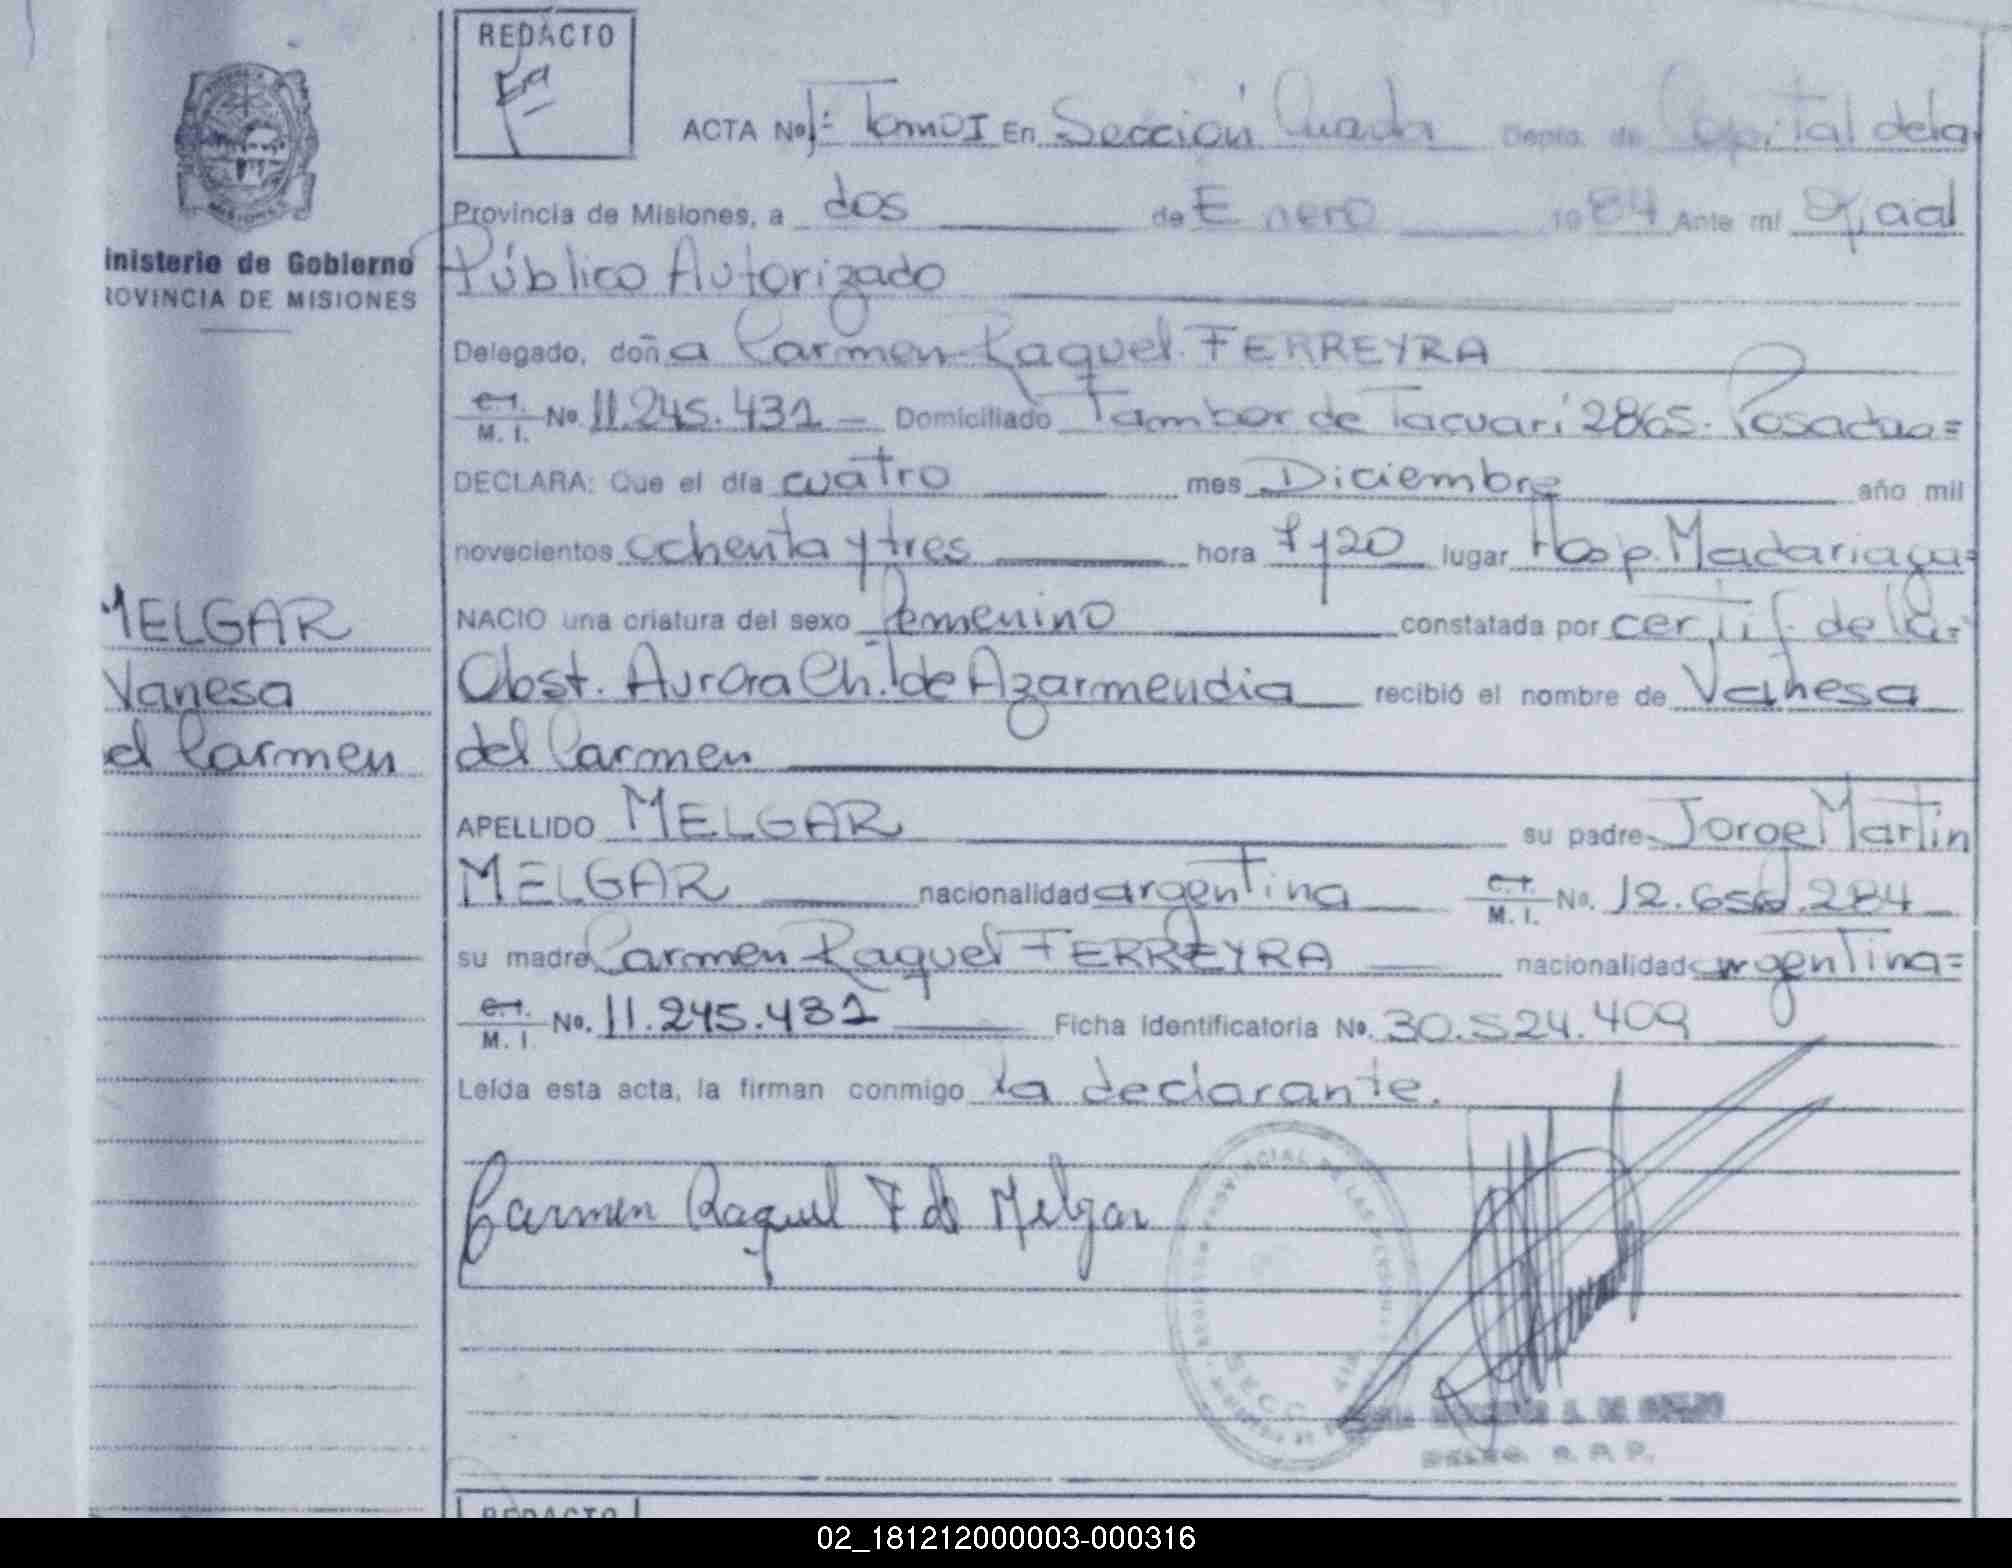 REDACTO
ACTA No 1- Tomo I En Sección Cuarta Depto. de Capital de la
Provincia de Misiones, a dos de Enero 1984 Ante mí Oficial
inisterio de Gobierno
Público Autorizado
ROVINCIA DE MISIONES
Delegado, doña Carmen Raquel FERREYRA
C.I.
M. I. No 11.245.431 - Domiciliado Tambor de Tacuarí 2865. Posadas=
DECLARA: Que el día cuatro mes Diciembre año mil
novecientos ochenta y tres hora 7,20 lugar Hosp. Madariaga=
MELGAR
NACIO una criatura del sexo femenino constatada por certif. de la=
Vanesa
Obst. Aurora Ch. de Azarmendia recibió el nombre de Vanesa
el Carmen
del Carmen
APELLIDO MELGAR su padre Jorge Martin
MELGAR nacionalidad argentina C.I. M. I. No. 12.656.284
su madre Carmen Raquel FERREYRA nacionalidad argentina=
C.I.
M. I. No. 11.245.431 Ficha Identificatoria No. 30.524.409
Leída esta acta, la firman conmigo la declarante.
Carmen Raquel F de Melgar
PROVINCIAL DE LAS
SECC
REDACTO
MISIONES
02_181212000003-000316